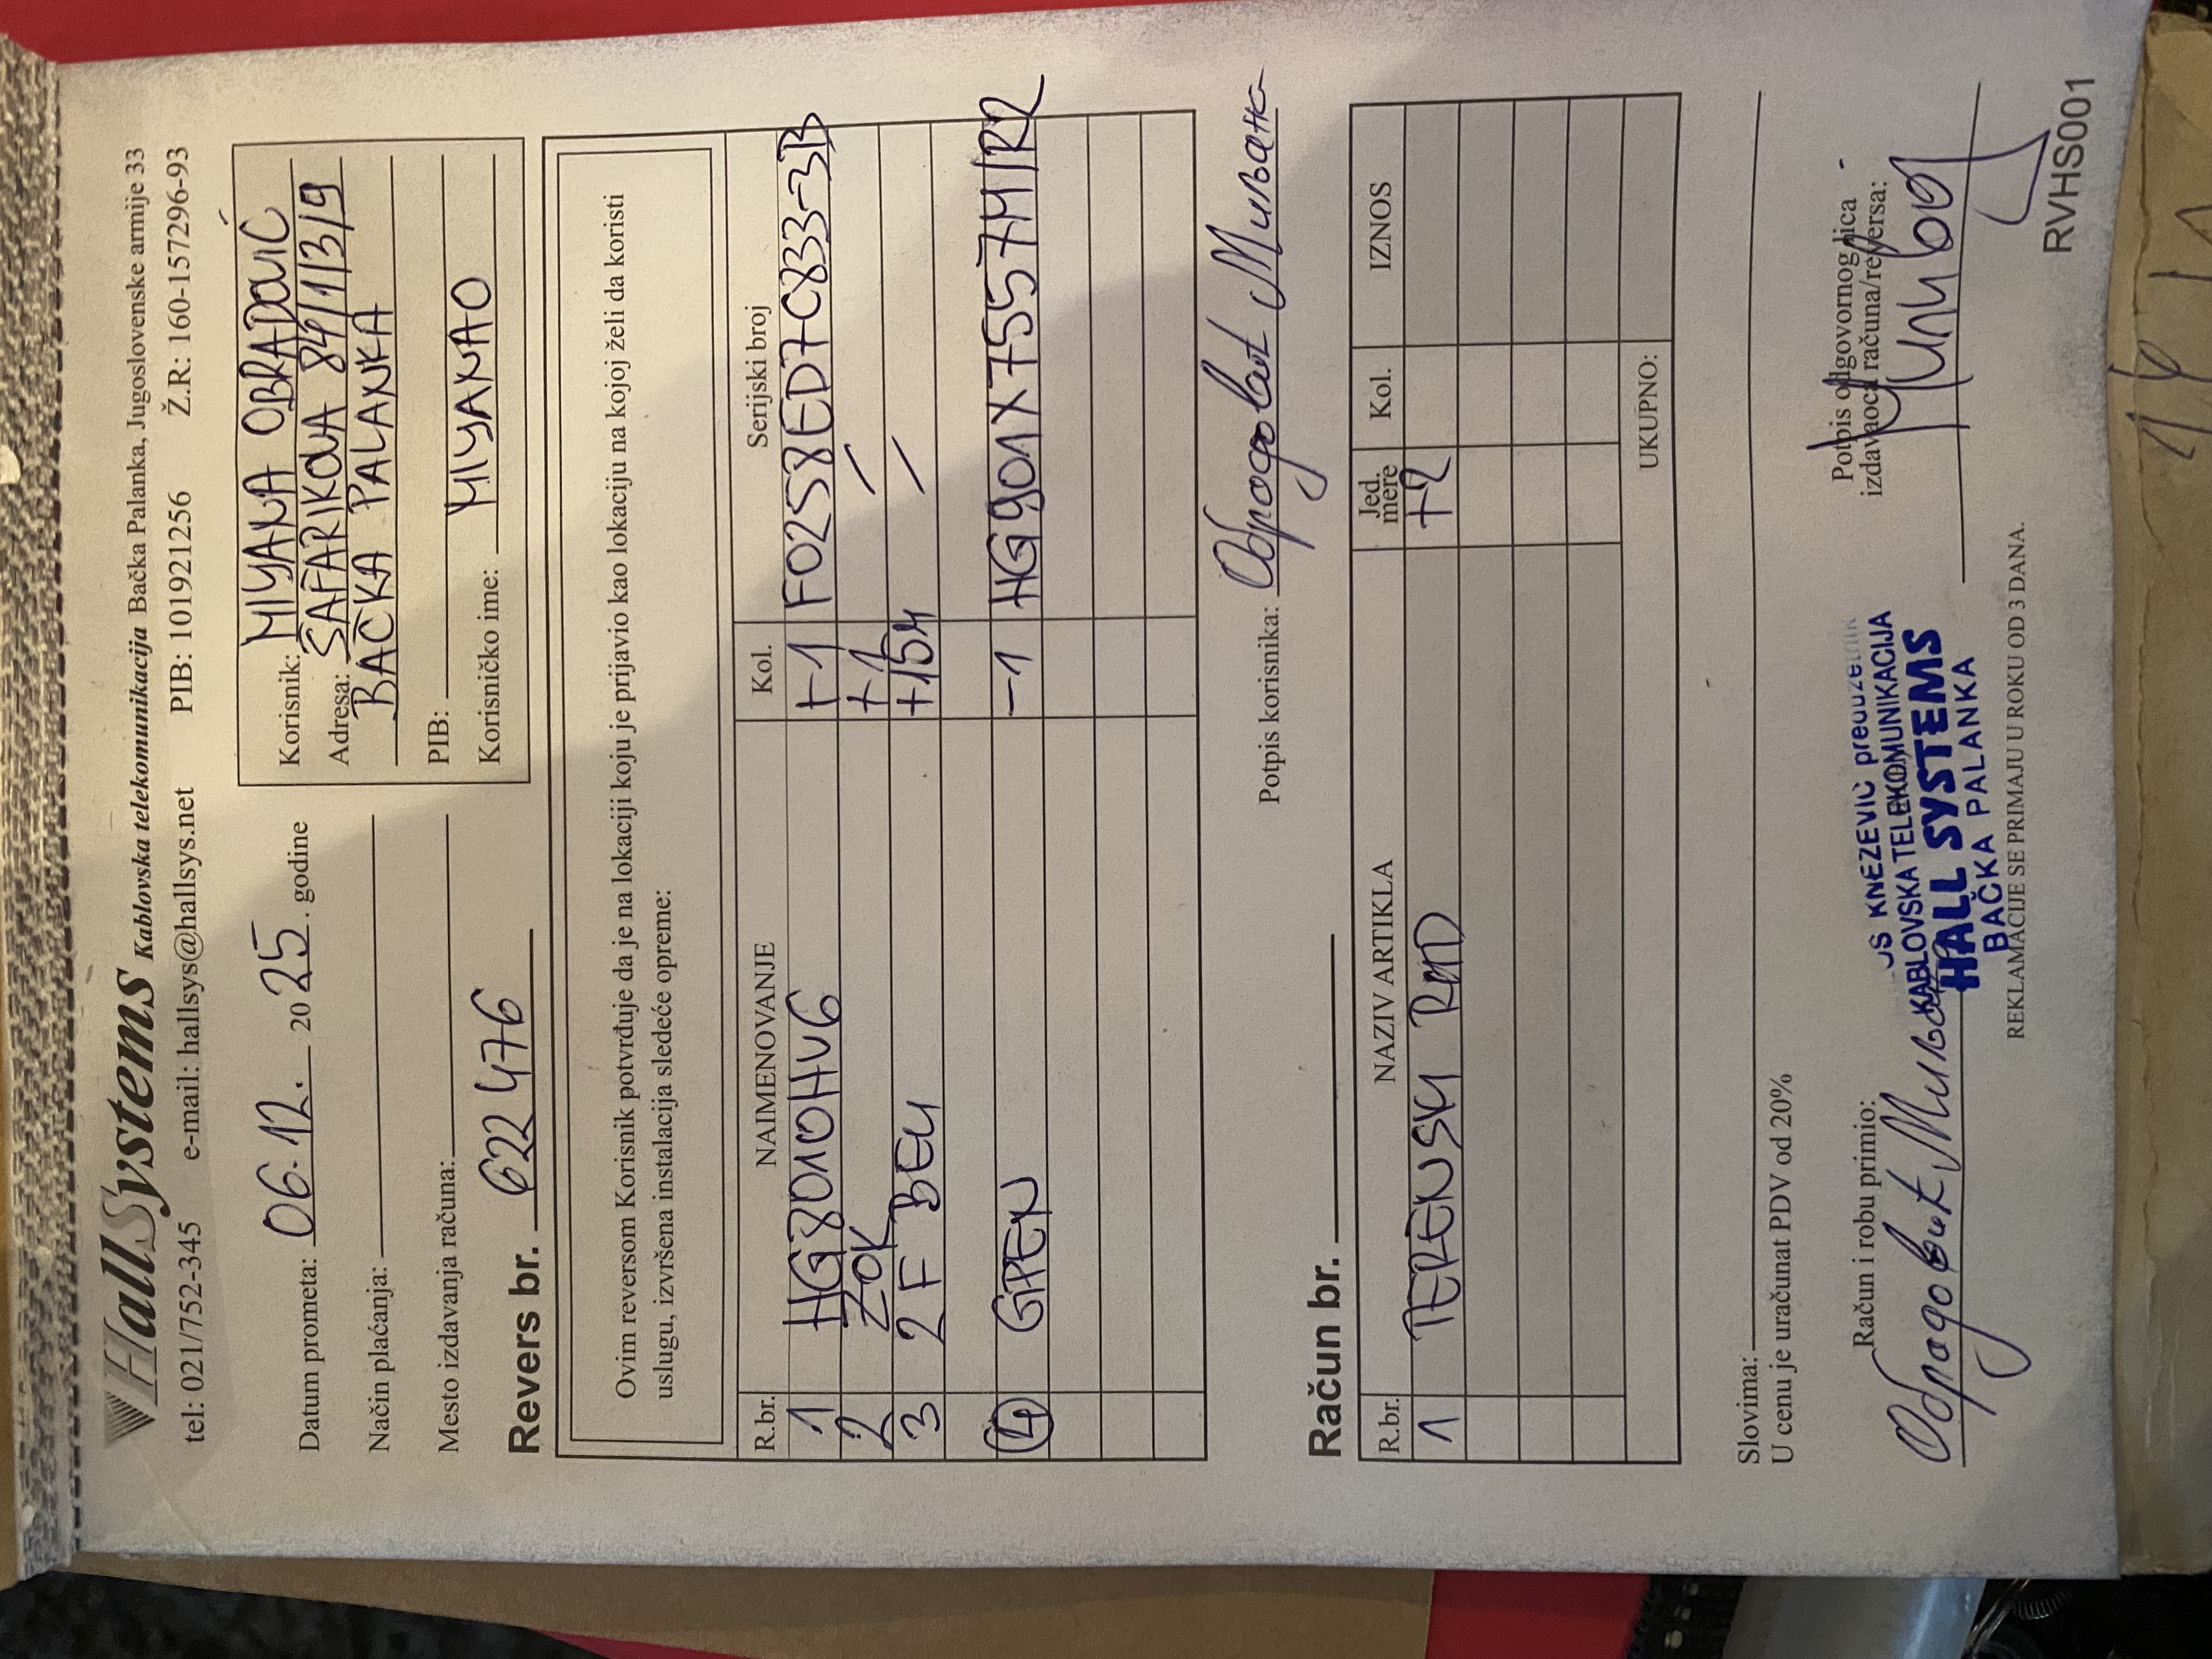 HallSystems Kablovska telekomunikacija Bačka Palanka, Jugoslovenske armije 33
tel: 021/752-345 e-mail: hallsys@hallsys.net PIB: 101921256 Ž.R.: 160-157296-93
Datum prometa: 06.12. 2025. godine
Način plaćanja:
Mesto izdavanja računa:
Korisnik: MIYANA OBRADOVIĆ
Adresa: ŠAFARIKOVA 84/1/3/9
BAČKA PALANKA
PIB:
Korisničko ime: MIYANAO
Revers br. 622476
Ovim reversom Korisnik potvrđuje da je na lokaciji koju je prijavio kao lokaciju na kojoj želi da koristi
uslugu, izvršena instalacija sledeće opreme:
R.br. NAIMENOVANJE Kol. Serijski broj
1 HG8010HV6 +1 F0258ED7C833-3B
2 ZOK +1 /
3 2F BELI +15M /
4 GPEN -1 HG901X7557MIR2
Potpis korisnika: Обрадовић Миљана
Račun br.
R.br. NAZIV ARTIKLA Jed. mere Kol. IZNOS
1 TERENSKI RAD +2
UKUPNO:
Slovima:
U cenu je uračunat PDV od 20%
Račun i robu primio:
Обрадовић Миљана
KNEZEVIĆ preduzetnik
KABLOVSKA TELEKOMUNIKACIJA
HALL SYSTEMS
BAČKA PALANKA
Potpis odgovornog lica
izdavaoca računa/reversa:
REKLAMACIJE SE PRIMAJU U ROKU OD 3 DANA.
RVHS001